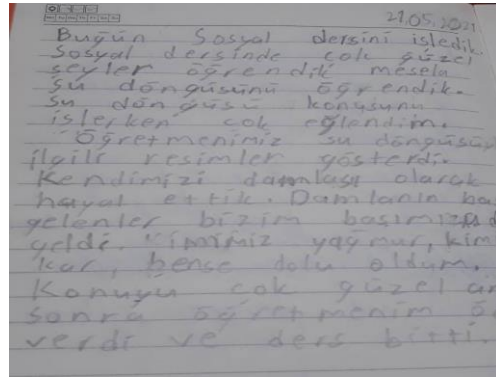 21.05.2021
Bugün Sosyal dersini işledik.
Sosyal dersinde çok güzel
şeyler öğrendik mesela
su döngüsünü öğrendik.
Su döngüsü konusunu
işlerken çok eğlendim.
Öğretmenimiz su döngüsüy
ilgili resimler gösterdi.
Kendimizi damlası olarak
hayal ettik. Damlanın ba
gelenler bizim başımıza
geldi. imimiz yağmur, kim
kar, bense dolu oldum.
Konuyu çok güzel an
sonra öğretmenim ö
verdi ve ders bitti.